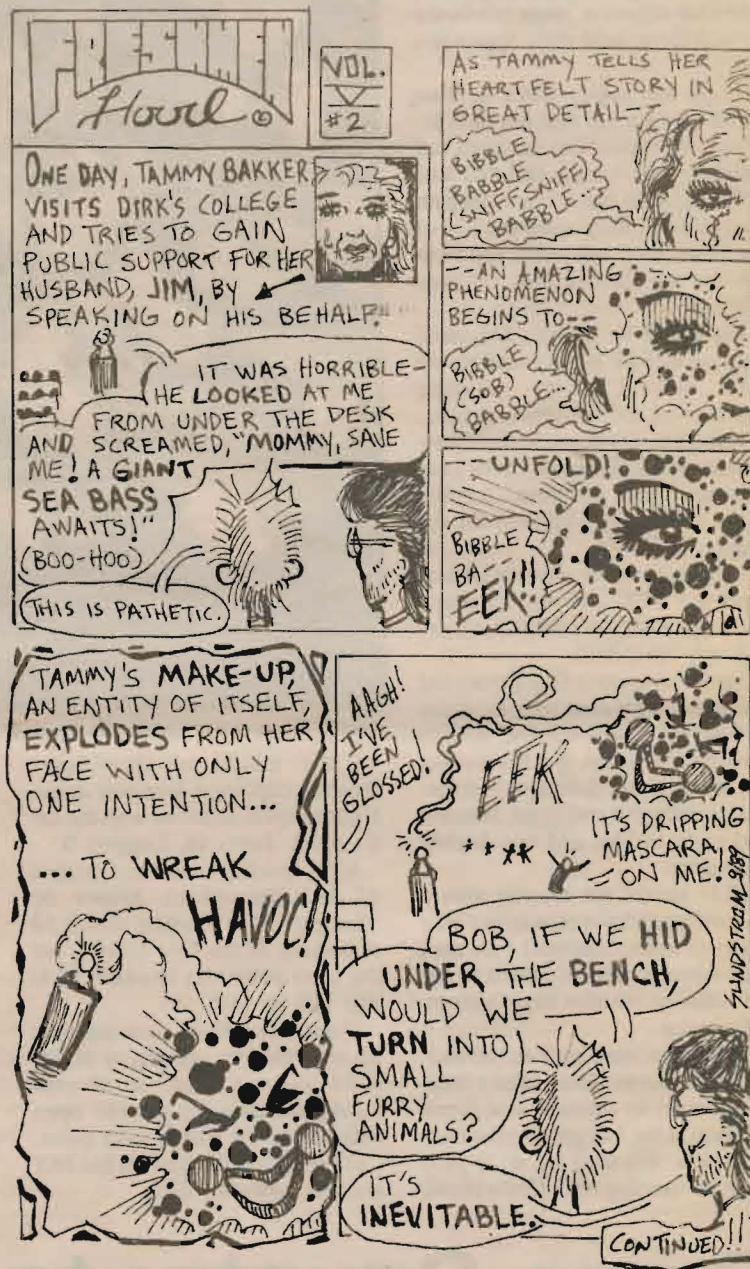 FRESHMEN
Howl ©
VOL.
V
#2
ONE DAY, TAMMY BAKKER
VISITS DIRK'S COLLEGE
AND TRIES TO GAIN
PUBLIC SUPPORT FOR HER
HUSBAND, JIM, BY
SPEAKING ON HIS BEHALF."
IT WAS HORRIBLE-
HE LOOKED AT ME
FROM UNDER THE DESK
AND SCREAMED, "MOMMY, SAVE
ME! A GIANT
SEA BASS
AWAITS!"
(BOO-HOO)
THIS IS PATHETIC.
AS TAMMY TELLS HER
HEARTFELT STORY IN
GREAT DETAIL--
BIBBLE
BABBLE
(SNIFF, SNIFF)
BABBLE...
--AN AMAZING
PHENOMENON
BEGINS TO--
BIBBLE
(SOB)
BABBLE...
--UNFOLD!
BIBBLE
BA--
EEK!!
TAMMY'S MAKE-UP,
AN ENTITY OF ITSELF,
EXPLODES FROM HER
FACE WITH ONLY
ONE INTENTION...
...TO WREAK
HAVOC!
AAGH!
I'VE
BEEN
GLOSSED!
EEK
IT'S DRIPPING
MASCARA
ON ME!
SUNDSTROM 9/89
BOB, IF WE HID
UNDER THE BENCH,
WOULD WE
TURN INTO
SMALL
FURRY
ANIMALS?
IT'S
INEVITABLE.
CONTINUED!!